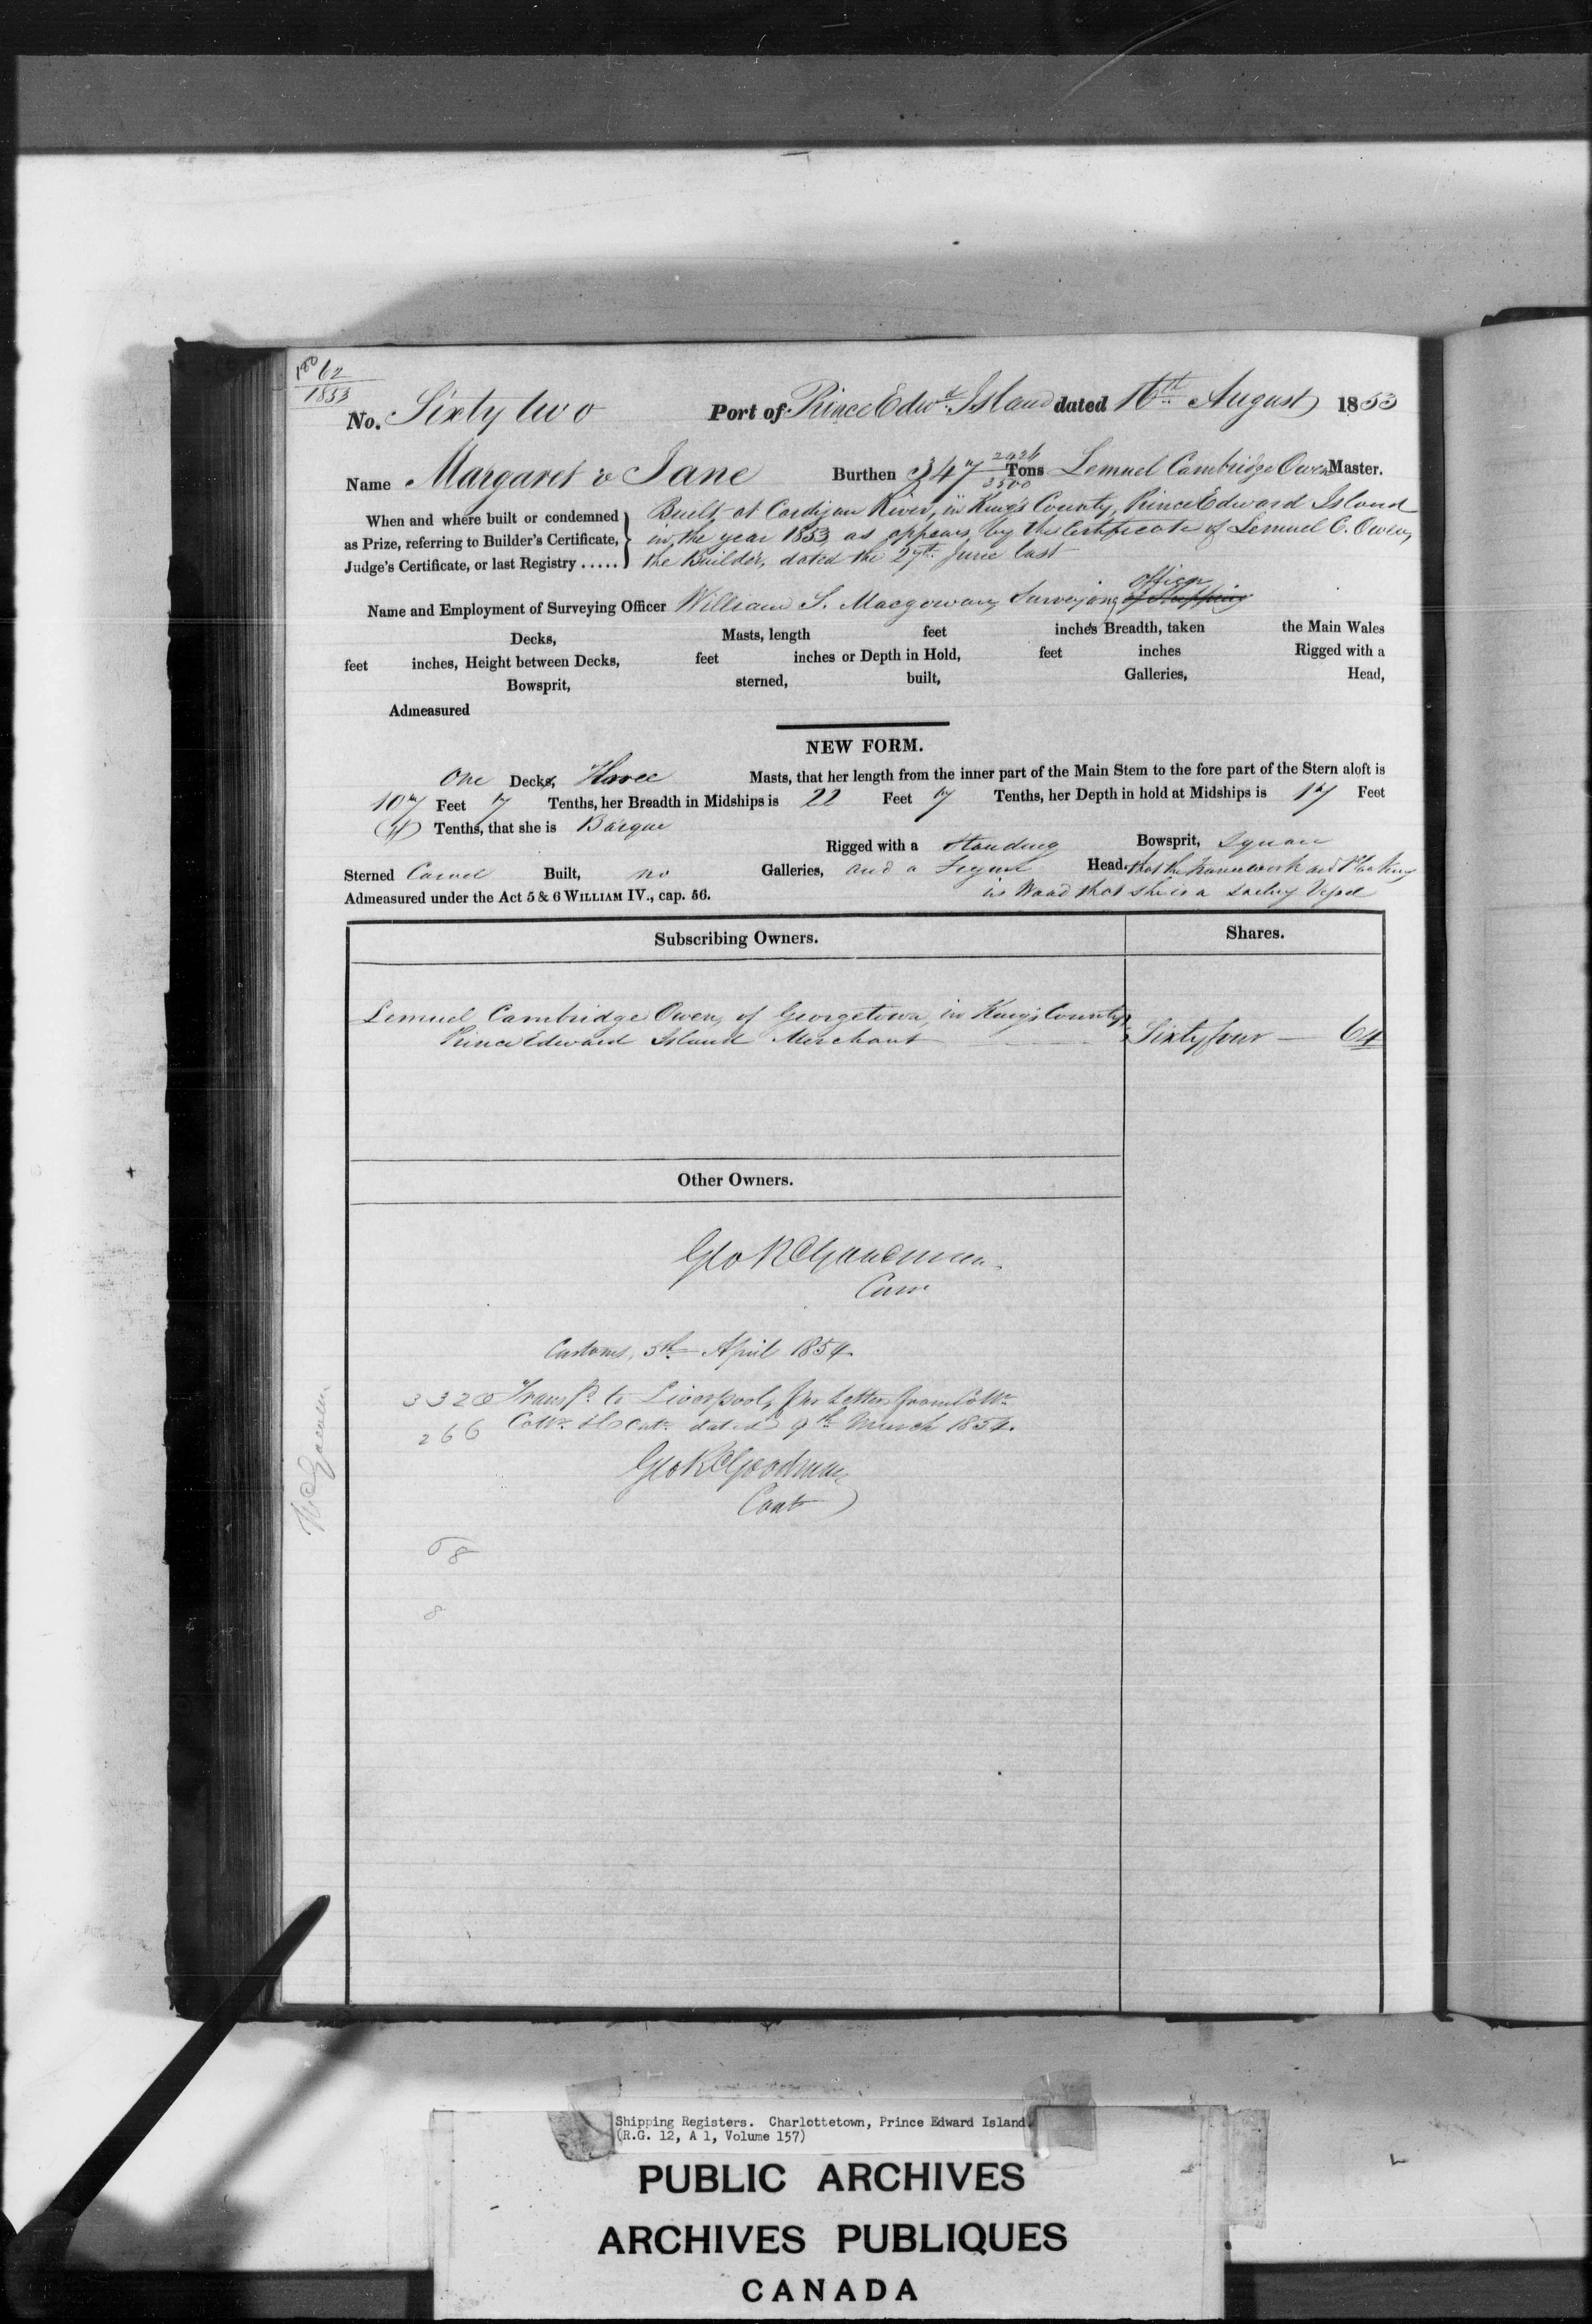 62
1853
No. Sixty two Port of Prince Edwd. Island dated 16th August 1853
Name Margaret & Jane Burthen 347 2426/3500 Tons Lemuel Cambridge Owen Master.
When and where built or condemned as Prize, referring to Builder's Certificate, Judge's Certificate, or last Registry.....
Built at Cardigan River, in King's County, Prince Edward Island
in the year 1853 as appears by the Certificate of Lemuel C. Owen,
the Builder, dated the 27th June last
Name and Employment of Surveying Officer William S. Macgowan, Surveying officer of Shipping
Decks, Masts, length feet inches Breadth, taken the Main Wales
feet inches, Height between Decks, feet inches or Depth in Hold, feet inches Rigged with a
Bowsprit, sterned, built, Galleries, Head,
Admeasured
NEW FORM.
One Decks, Three Masts, that her length from the inner part of the Main Stem to the fore part of the Stern aloft is
107 Feet 7 Tenths, her Breadth in Midships is 22 Feet 7 Tenths, her Depth in hold at Midships is 17 Feet
Tenths, that she is Barque
Rigged with a Standing Bowsprit, Square
Sterned Carvel Built, no Galleries, and a Figure Head. that the framework and Planking
Admeasured under the Act 5 & 6 WILLIAM IV., cap. 56. is Wood that she is a Sailing Vessel
Subscribing Owners. Shares.
Lemuel Cambridge Owen, of Georgetown, in King's County
Prince Edward Island Merchant Sixty four — 64
Other Owners.
Geo R Goodman
Customs, 5th April 1854.
3320 Transfd. to Liverpool, per Letter from
266 dated 9th March 1854.
Geo R Goodman
Cont
8
Shipping Registers. Charlottetown, Prince Edward Island.
(R.G. 12, A 1, Volume 157)
PUBLIC ARCHIVES
ARCHIVES PUBLIQUES
CANADA